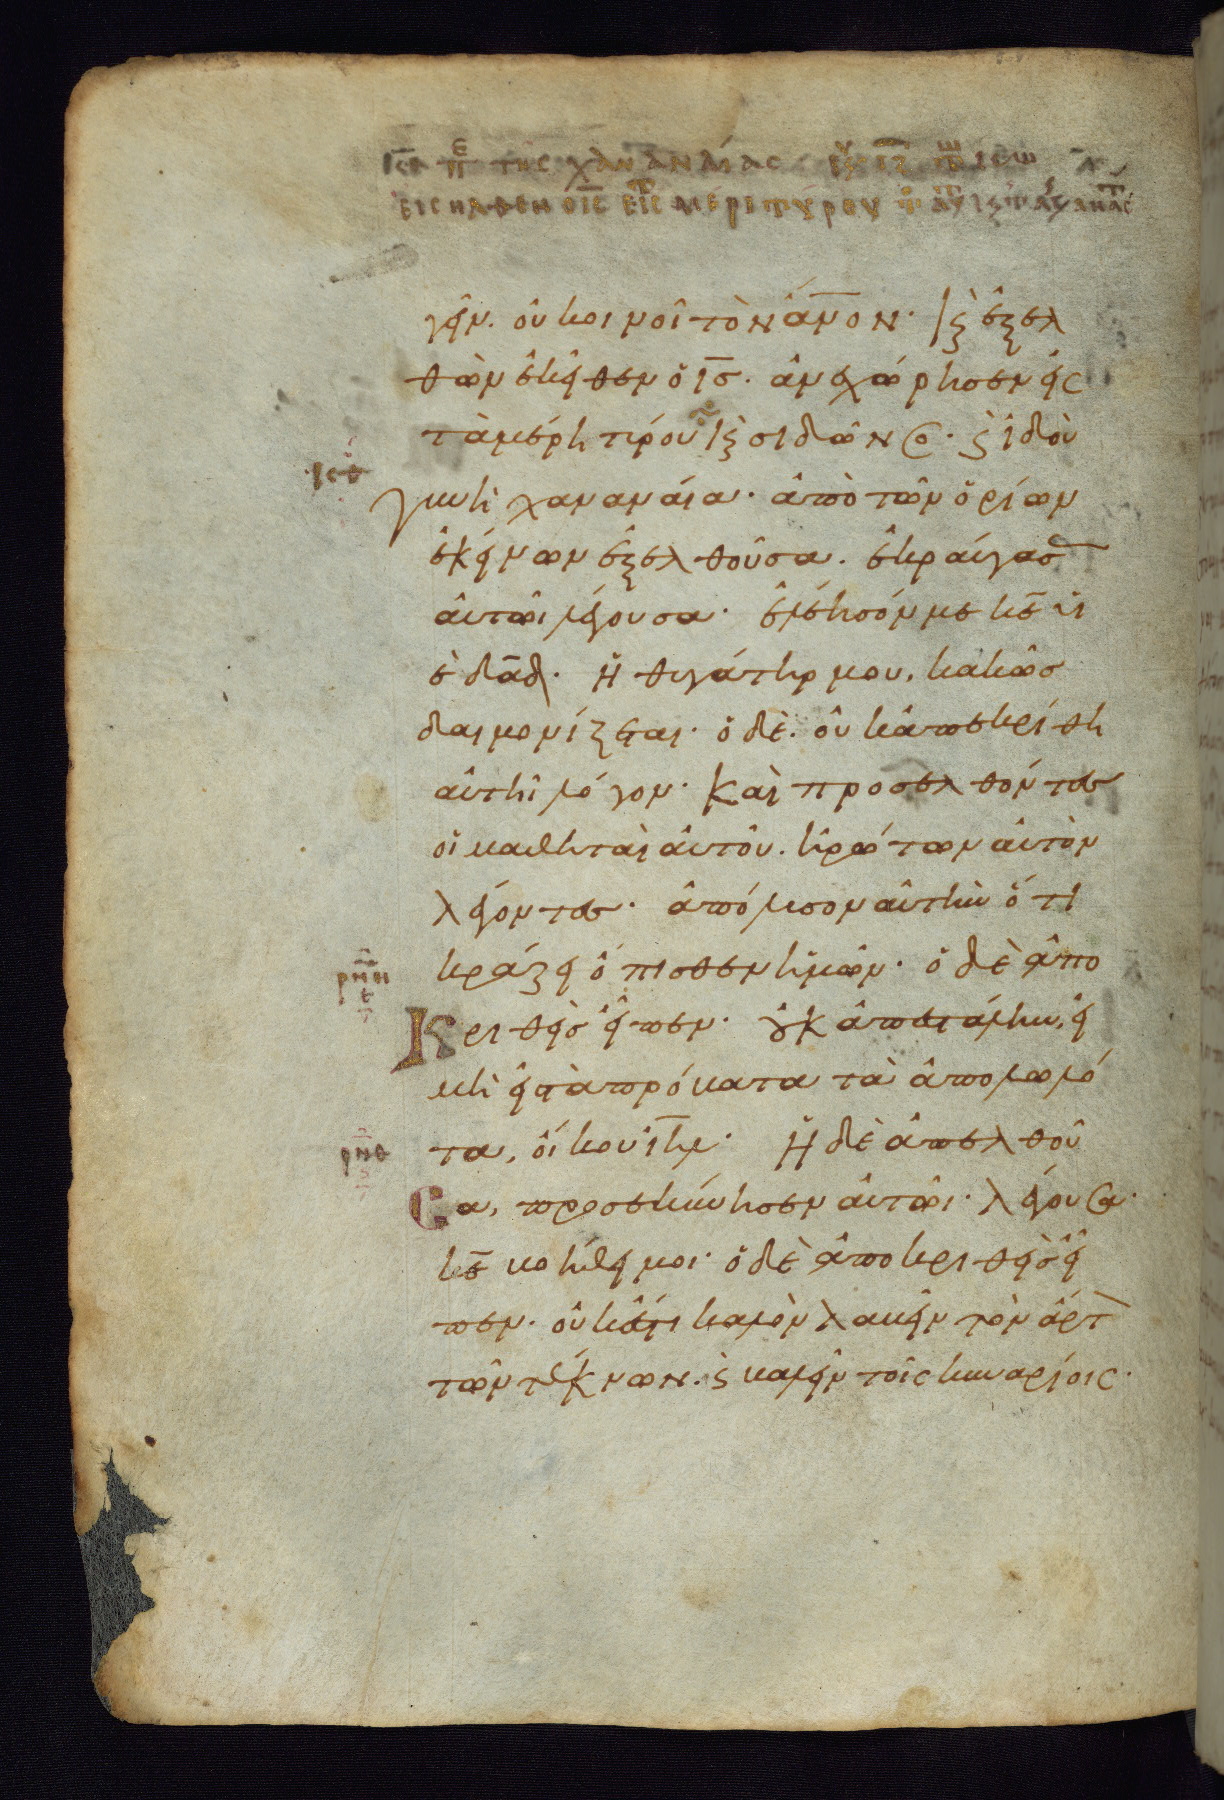 της χὰναναίας
εισηλθεν ο ις εις μέρι τύρου
γεῖν. οὐ κοιμοῖ τὸν ἄνον. Κ̀ ἐξελ
θὼν ἐκεῖθεν ὁ ις. ἀνεχώρησεν εἰς
τὰ μέρη τύρου κ̀ σιδῶνος. κ̀ ἰδοὺ
γυνὴ χαναναία. ἀπὸ τῶν ὁρίων
ἐκείνων ἐξελθοῦσα. ἐκραύγασ
αὐτῶι λέγουσα. ἐλέησόν με κε υἱ
ὲ δαδ. ἡ θυγάτηρ μου, κακῶσ
δαιμονίζεται. ὁ δὲ. οὐκ ἀπεκρίθη
αὐτῆι λόγον. Καὶ προσελθόντες
οἱ μαθηταὶ αὐτοῦ. ἠρώτων αὐτὸν
λέγοντες. ἀπόλυσον αὐτὴν ὅτι
κράζει ὄπισθεν ἡμῶν. ὁ δὲ ἀπο
ρνη
Κριθεὶς εἶπεν. οὐκ ἀπεστάλην, εἰ
μὴ εἰς τὰ πρόβατα τὰ ἀπολωλό
ρνθ
τα, οἴκου ιηλ. Ἡ δὲ ἀπελθοῦ
Σα, προσεκύνησεν αὐτῶι. λέγουσα.
κε βοήθει μοι. ὁ δὲ ἀποκριθεὶς εἶ
πεν. οὐκ ἔστι καλὸν λαβεῖν τὸν ἄρτ
τῶν τέκνων. κ̀ βαλεῖν τοῖς κυναρίοις.